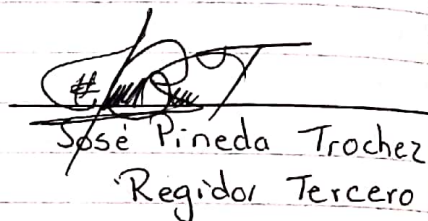 José Pineda Trochez
Regidor Tercero